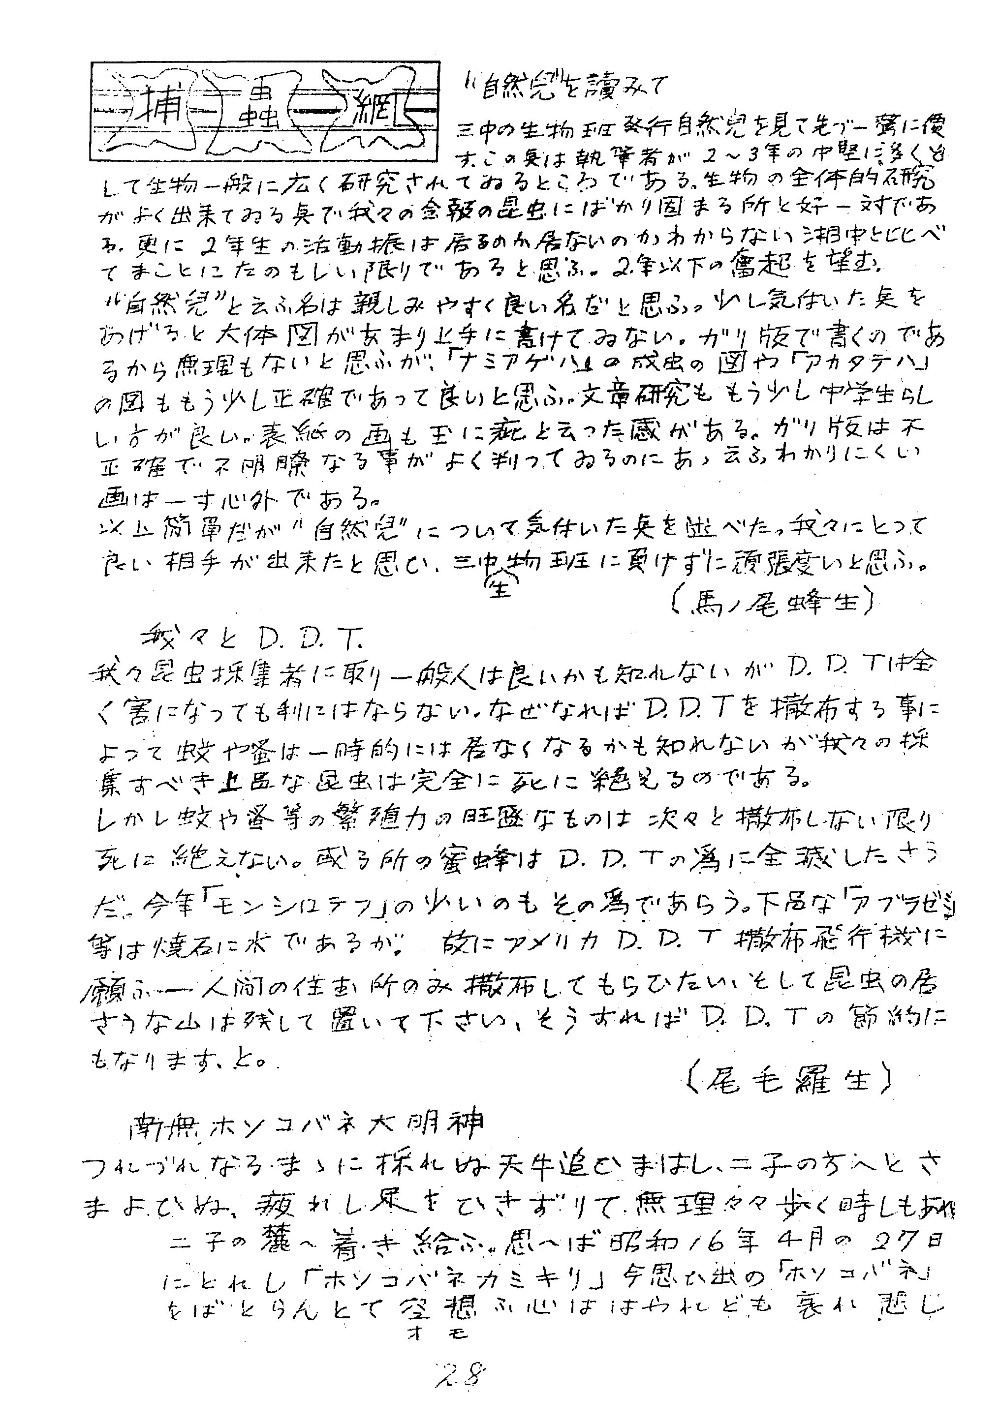 捕蟲網
"自然兒"を讀みて
三中の生物班発行自然兒を見て先づ一番に價
す。この点は執筆者が2〜3年の中堅に多くと
して生物一般に広く研究されてゐるところである。生物の全体的研究
がよく出来てゐる点で我々の会報の昆虫にばかり固まる所と好一対であ
る。更に2年生の活動振は居るのか居ないのかわからない湘中と比べ
てまことにたのもしい限りであると思ふ。2年以下の奮起を望む。
"自然兒"と云ふ名は親しみやすく良い名だと思ふ。少し気付いた点を
あげると大体図があまり上手に書けてゐない。ガリ版で書くのであ
るから無理もないと思ふが、「ナミアゲハ」の成虫の図や「アカタテハ」
の図ももう少し正確であって良いと思ふ。文章研究ももう少し中学生らし
い方が良い。表紙の画も玉に疵と云った感がある。ガリ版は不
正確で不明瞭なる事がよく判ってゐるのにあゝ云ふわかりにくい
画は一寸心外である。
以上簡單だが"自然兒"について気付いた点を述べた。我々にとって
良い相手が出来たと思ひ、三中生物班に負けずに頑張度いと思ふ。
(馬ノ尾蜂生)
我々とD.D.T.
我々昆虫採集者に取り一般人は良いかも知れないがD.D.Tは全
く害になっても利にはならない。なぜなればD.D.Tを撒布する事に
よって蚊や蚤は一時的には居なくなるかも知れないが我々の採
集すべき上品な昆虫は完全に死に絶えるのである。
しかし蚊や蚤等の繁殖力の旺盛なものは次々と撒布しない限り
死に絶えない。或る所の蜜蜂はD.D.Tの為に全滅したさう
だ。今年「モンシロテフ」の少いのもその為であらう。下品な「アブラゼミ」
等は焼石に水であるが。故にアメリカD.D.T撒布飛行機に
願ふ──人間の住む所のみ撒布してもらひたい、そして昆虫の居
さうな山は残して置いて下さい、そうすればD.D.Tの節約に
もなります、と。
(尾毛羅生)
南無ホソコバネ大明神
つれづれなるまゝに採れぬ天牛追ひまはし、二子の方へとさ
まよひぬ、疲れし足をひきずりて無理々々歩く時しもあれ
二子の麓へ着き給ふ。思へば昭和16年4月の27日
にとれし「ホソコバネカミキリ」今思ひ出の「ホソコバネ」
をばとらんとて空想ふ心ははやれども哀れ悲し
オモ
28